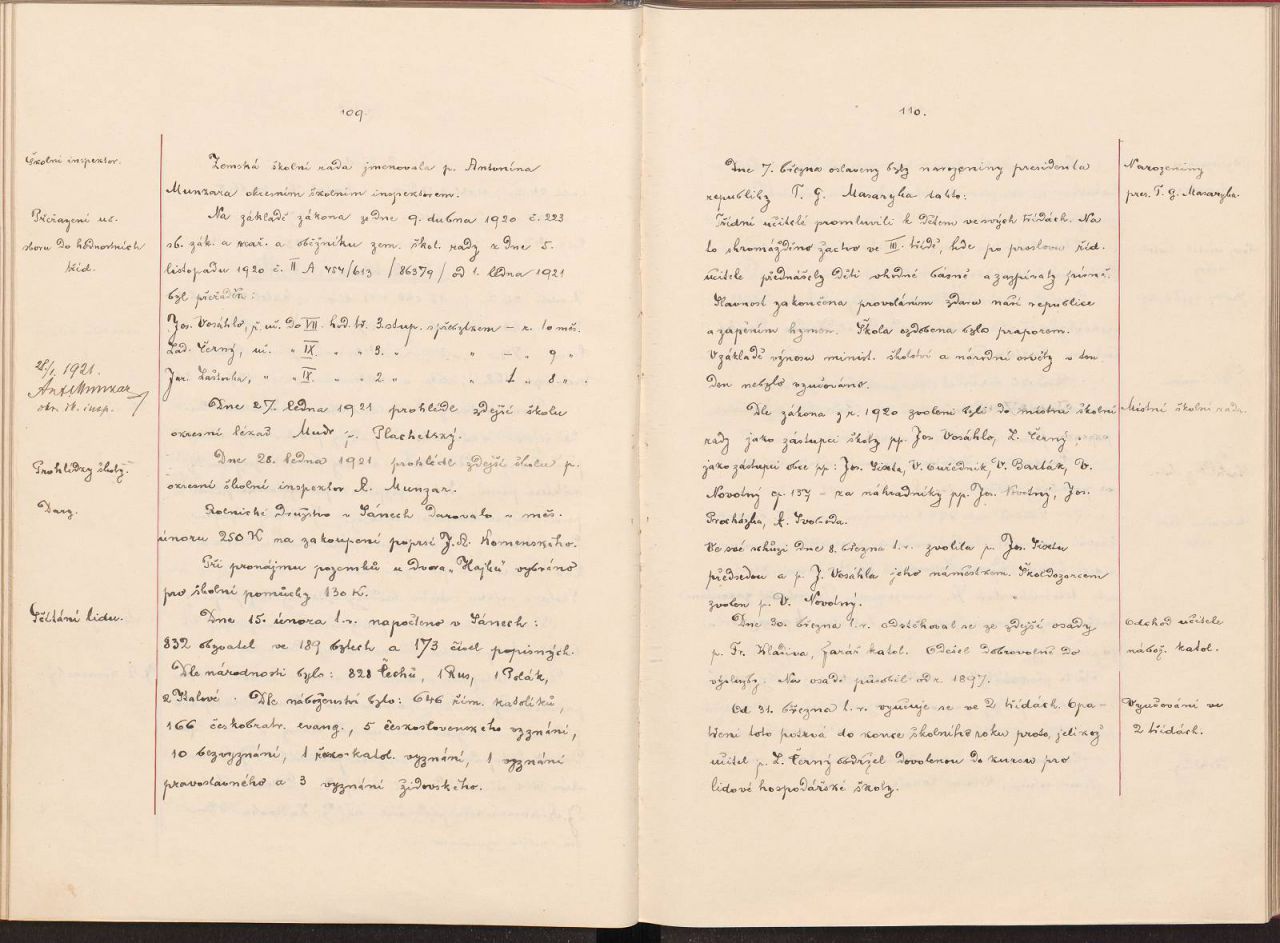 109.
Školní inspektor.
Zemská školní rada jmenovala p. Antonína
Munzara okresním školním inspektorem.
Přeřazení uč.
sboru do hodnostních
tříd.
Na základě zákona ze dne 9. dubna 1920 č. 223
sb. zák. a nař. a oběžníku zem. škol. rady z dne 5.
listopadu 1920 č. II A 454/613 /86379/ od 1. ledna 1921
byl přeřaděn:
Jos. Vosáhlo, ř. uč. do VII. hod. tř. 3. stup. s přebytkem – r. 10 měs.
Lad. Černý, uč. " " IX. " " 3. " " – " 9 "
Jar. Laštovka, " " IX. " " 2 " " 1 " 8 " .
28/1. 1921.
Ant. Munzar
okr. šk. insp.
Dne 27. ledna 1921 prohlédl zdejší školu
okresní lékař Mudr. p. Plachetský.
Prohlídky školy.
Dne 28. ledna 1921 prohlédl zdejší školu p.
okresní školní inspektor A. Munzar.
Dary.
Rolnické Družstvo v Sánech darovalo v měs.
únoru 250 K na zakoupení poprsí J. A. Komenského.
Při pronájmu pozemků u dvora „Hajků" vybráno
pro školní pomůcky 130 K.
Sčítání lidu.
Dne 15. února t. r. napočteno v Sánech:
832 obyvatel ve 189 bytech a 173 čísel popisných.
Dle národnosti bylo: 828 Čechů, 1 Rus, 1 Polák,
2 Italové. Dle náboženství bylo: 646 řím. katolíků,
166 českobratr. evang., 5 československého vyznání,
10 bezvyznání, 1 katol. vyznání, 1 vyznání
pravoslavného a 3 vyznání židovského.
110.
Dne 7. března oslaveny byly narozeniny presidenta
republiky T. G. Masaryka takto:
Narozeniny
pres. T. G. Masaryka.
Třídní učitelé promluvili k dětem ve svých třídách. Na
to shromážděno žactvo ve III. třídě, kde po proslovu říd.
učitele přednášely děti vhodné básně a zazpívaly písně.
Slavnost zakončena provoláním zdaru naší republice
a zapěním hymen. Škola ozdobena byla praporem.
V základě výnosu minist. školství a národní osvěty v ten
den nebylo vyučováno.
Místní školní rada.
Dle zákona z r. 1920 zvoleni byli do místní školní
rady jako zástupci školy pp. Jos. Vosáhlo, L. Černý,
jako zástupci obce pp: Jos. Sixta, V. Barták, V.
Novotný čp. 137 – za náhradníky pp. Jos. Novotný, Jos.
Procházka, A. Svoboda.
Ve své schůzi dne 8. března t. r. zvolila p. Jos. Sixtu
předsedou a p. J. Vosáhla jeho náměstkem. Škol. dozorcem
zvolen p. V. Novotný.
Odchod učitele
nábož. katol.
Dne 30. března t. r. odstěhoval se ze zdejší osady
p. Fr. Hladiva, farář katol. Odešel dobrovolně do
výslužby. Na osadě působil od r. 1897.
Vyučování ve
2 třídách.
Od 31. března t. r. vyučuje se ve 2 třídách. Opa-
tření toto potrvá do konce školního roku proto, jelikož
učitel p. L. Černý obdržel dovolenou do kursu pro
lidové hospodářské školy.